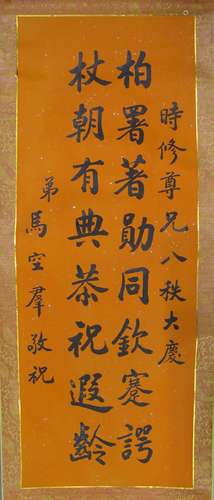 時修尊兄八秩大慶
柏署著勛同欽蹇諤
杖朝有典恭祝遐齡
弟馬空羣敬祝